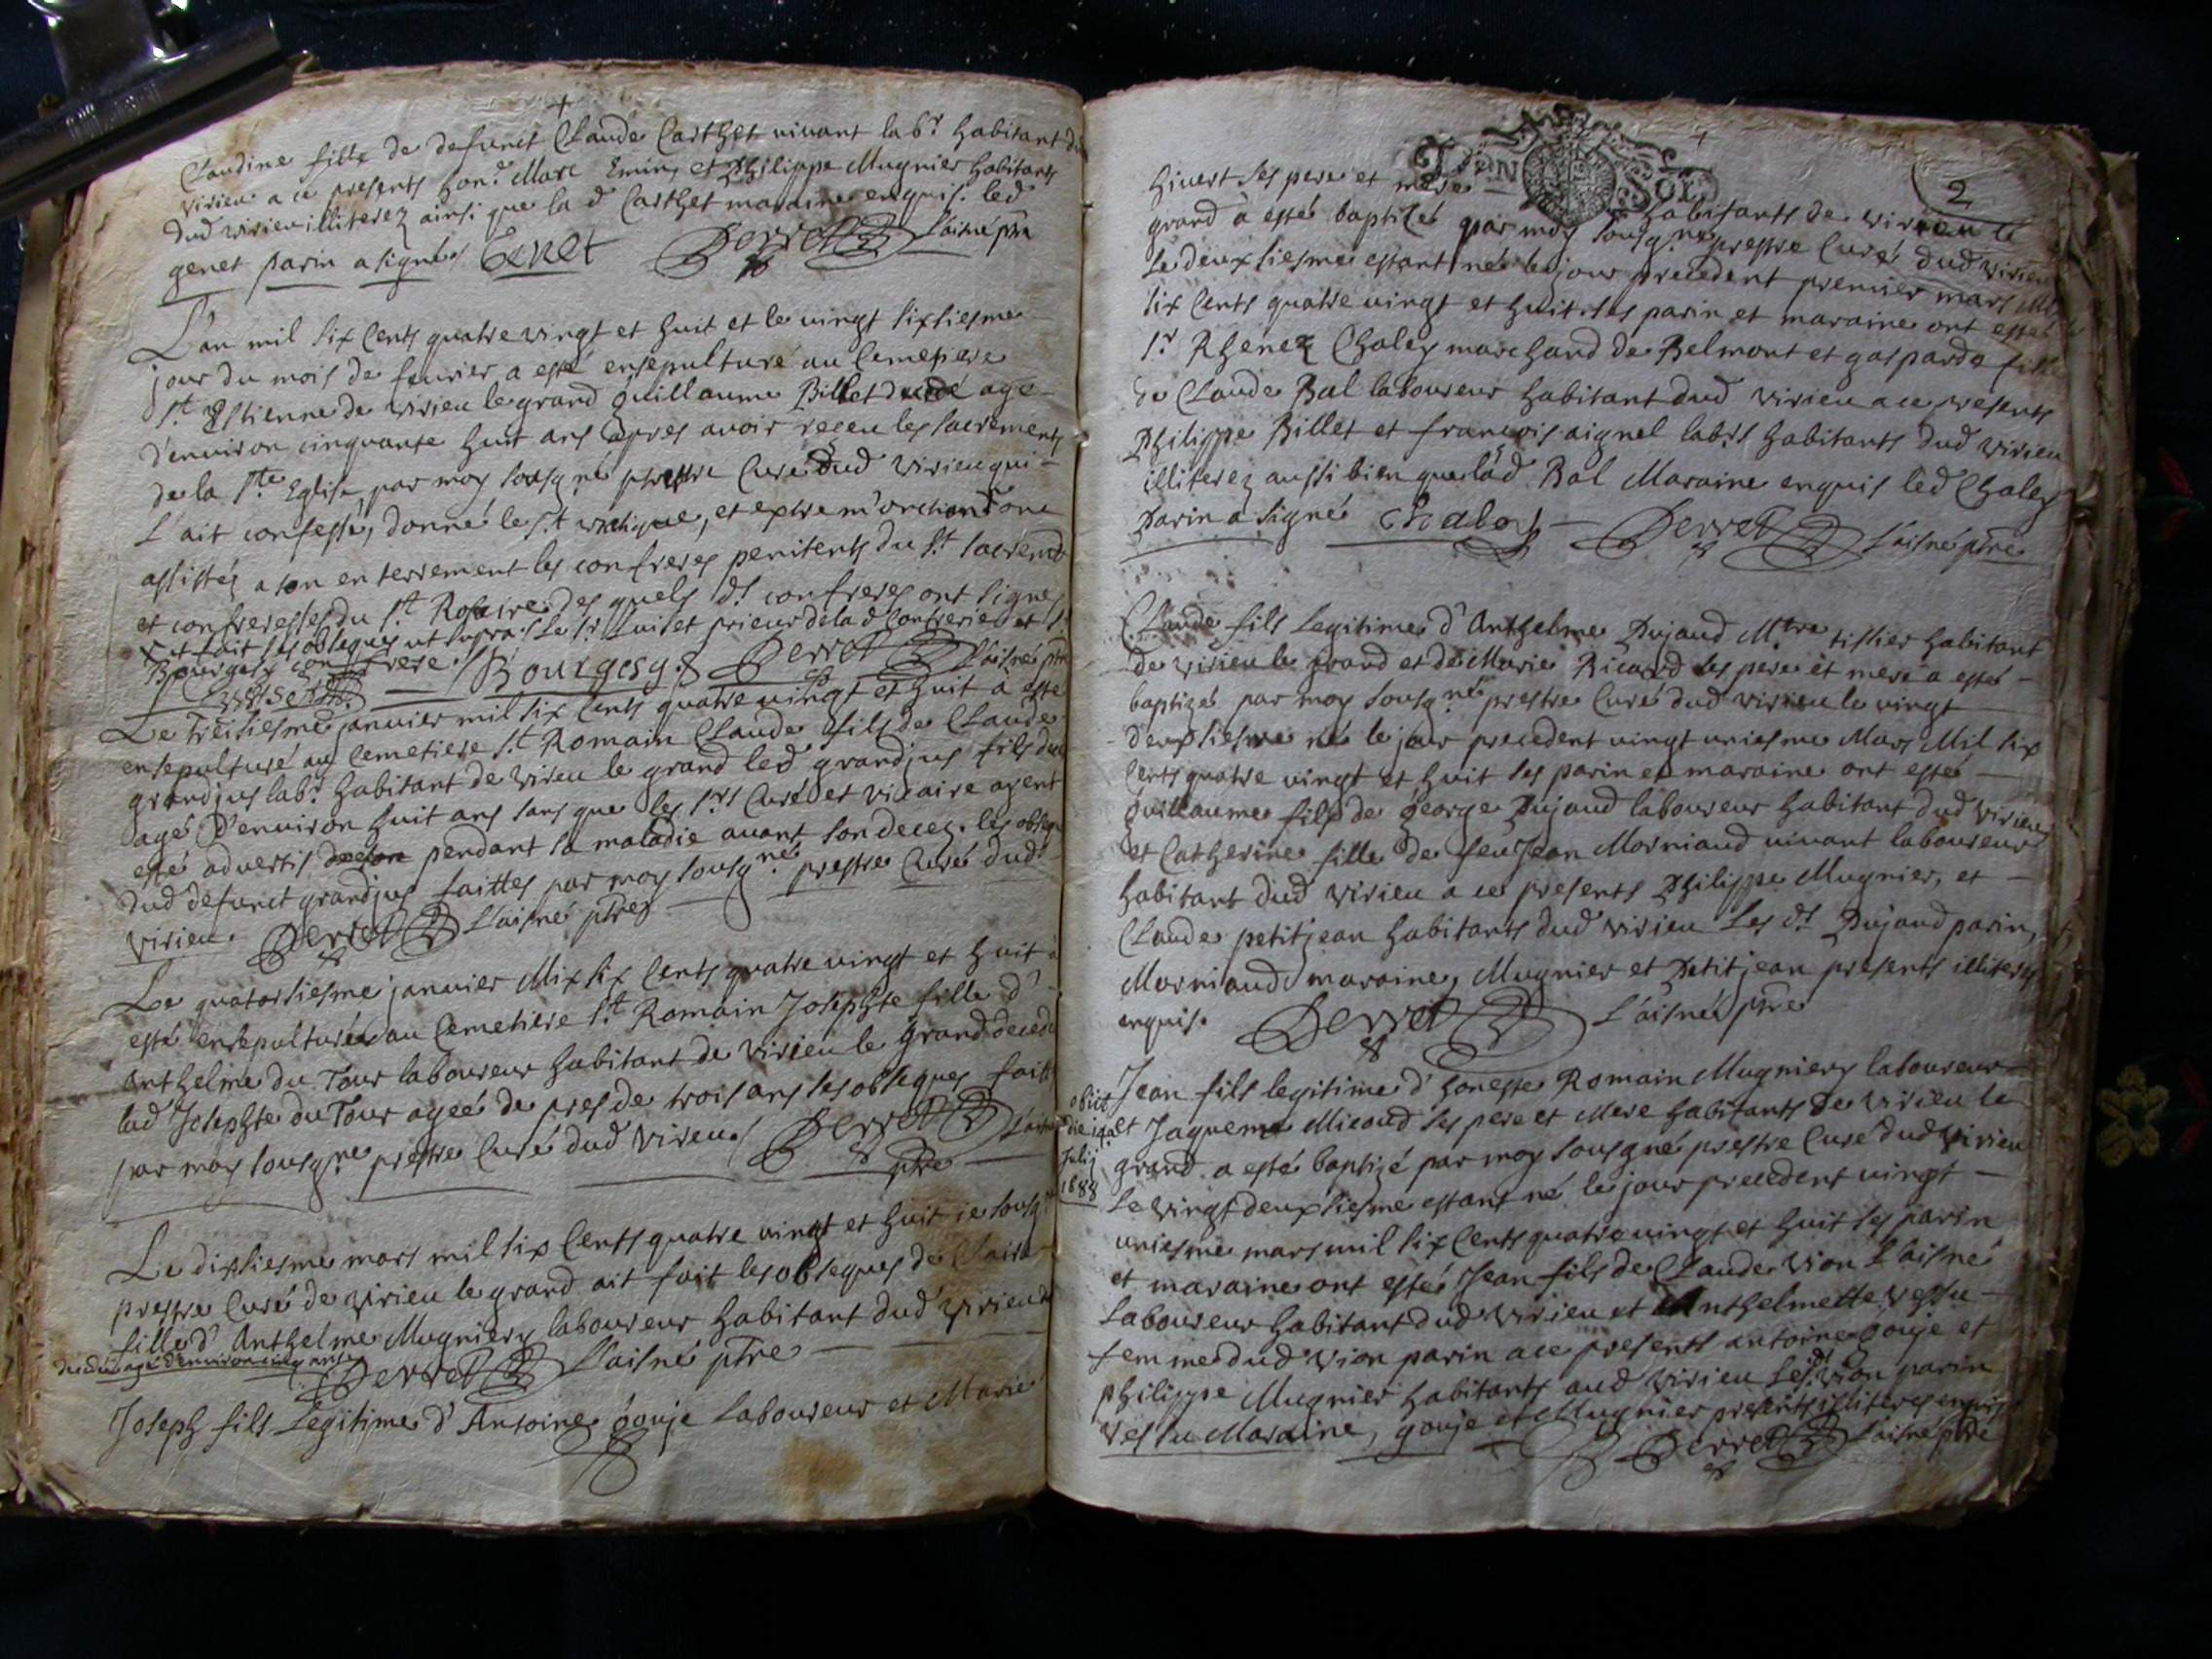 Claudine fille de defunct Claude Carthet vivant lab.r habitant du
virieu a ce presents hon.e Marc Emin, et Philippe Mugnier habitants
dud virieu illiterez ainsi que la d Carthet maraine enquis. led
genet parin a signé Genet Perret L'aisné ptre
L'an mil six Cents quatre vingt et huit et le vingt sixsiesme
jour du mois de fevrier a esté ensepulturé au Cemetiere
S.t Estienne de virieu le grand guillaume Billet agé
d'environ cinquante huit ans apres avoir receu les sacrements
de la S.te Eglise par moy sousg.né prestre Curé dud virieu qui
L'ait confessé, donné le S.t viatique, et extrem'onction ont
assistéz a son enterrement les confreres penitents du S.t sacrem.t
et confreresses du S.t Rosaire des quels d.s confreres ont signe
et fait ses obseques ut supra. Le S.r Luiset prieur de la d Confrerie et S.r
Bourgesy confrere. Bourgesy Perret L'aisné ptre
Le treisiesme janvier mil six Cents quatre vingt et huit a esté
ensepulturé au Cemetiere S.t Romain Claude fils de Claude
grandjus lab.r habitant de virieu le grand led grandjus fils
agé d'environ huit ans sans que les S.rs Curé et vicaire ayent
esté advertis pendant sa maladie avant son decez. les obseq
dud defunct grandjus faittes par moy sousg.né prestre Curé dud
virieu. Perret L'aisné ptre
Le quatorsiesme janvier Mil six Cents quatre vingt et huit a
esté ensepulturée au Cemetiere S.t Romain Josephte fille d'
Anthelme du Tour laboureur habitant de virieu le grand decede
lad Josephte du Tour agée de pres de trois ans ses obseques fait
par moy sousg.ne prestre Curé dud virieu Perret L'aisné
ptre
Le dixsiesme mars mil six Cents quatre vingt et huit ie sousg
prestre Curé de virieu le grand ait fait les obseques de Claire
fille d' Anthelme Mugniery laboureur habitant dud virieu
decedée agée d'environ cinq ans Perret L'aisné ptre
Joseph fils Legitime d' Antoine gouje Laboureur et Marie
2
J DEN SOL
hivert ses pere et mere habitants de virieu le
grand a esté baptizé par moy sousg.né prestre Curé dud virieu
Le deuxsiesme estant né le jour precedent premier mars Mil
six Cents quatre vingt et huit. ses parin et maraine ont estés
S.r Rhenez Chaley marchand de Belmont et gasparde fille
de Claude Bal laboureur habitant dud virieu a ce presents
Philippe Billet et françois aignel lab.rs habitants dud virieu
illiterez aussi bien que lad Bal Maraine enquis led Chaley
Parin a signé Chaley Perret L'aisné ptre
Claude fils Legitime d' Anthelme Pujaud M.tre tissier habitant
de virieu le grand et de Marie Ricard ses pere et mere a esté
baptizé par moy sousg.né prestre Curé dud virieu le vingt
deuxsiesme né le jour precedent vingt uniesme Mars Mil six
Cents quatre vingt et huit ses parin et maraine ont esté
guillaume fils de george Pujaud laboureur habitant dud virieu
et Catherine fille de feu Jean Morniaud vivant laboureur
habitant dud virieu a ce presents Philippe Mugnier, et
Claude petitjean habitants dud virieu Les d.s Pujaud parin,
Morniaud maraine, Mugnier et Petitjean presents illiterez
enquis. Perret L'aisné ptre
obiit
die
Julij
1688
Jean fils legitime d' honeste Romain Mugniery laboureur
et Jaquema Micoud ses pere et Mere habitants de virieu le
grand a esté baptizé par moy sousgné prestre Curé dud virieu
Le vingt deuxsiesme estant né le jour precedent vingt
uniesme mars mil six Cents quatre vingt et huit ses parin
et maraine ont esté Jean fils de Claude Vion L'aisné
Laboureur habitant dud virieu et Anthelmette Vessu
femme dud Vion parin a ce presents antoine gouje et
philippe Mugnier habitants aud virieu Les d.s Vion parin
Vessu Maraine, gouje et Mugnier presents illiterez enquis
Perret L'aisné ptre